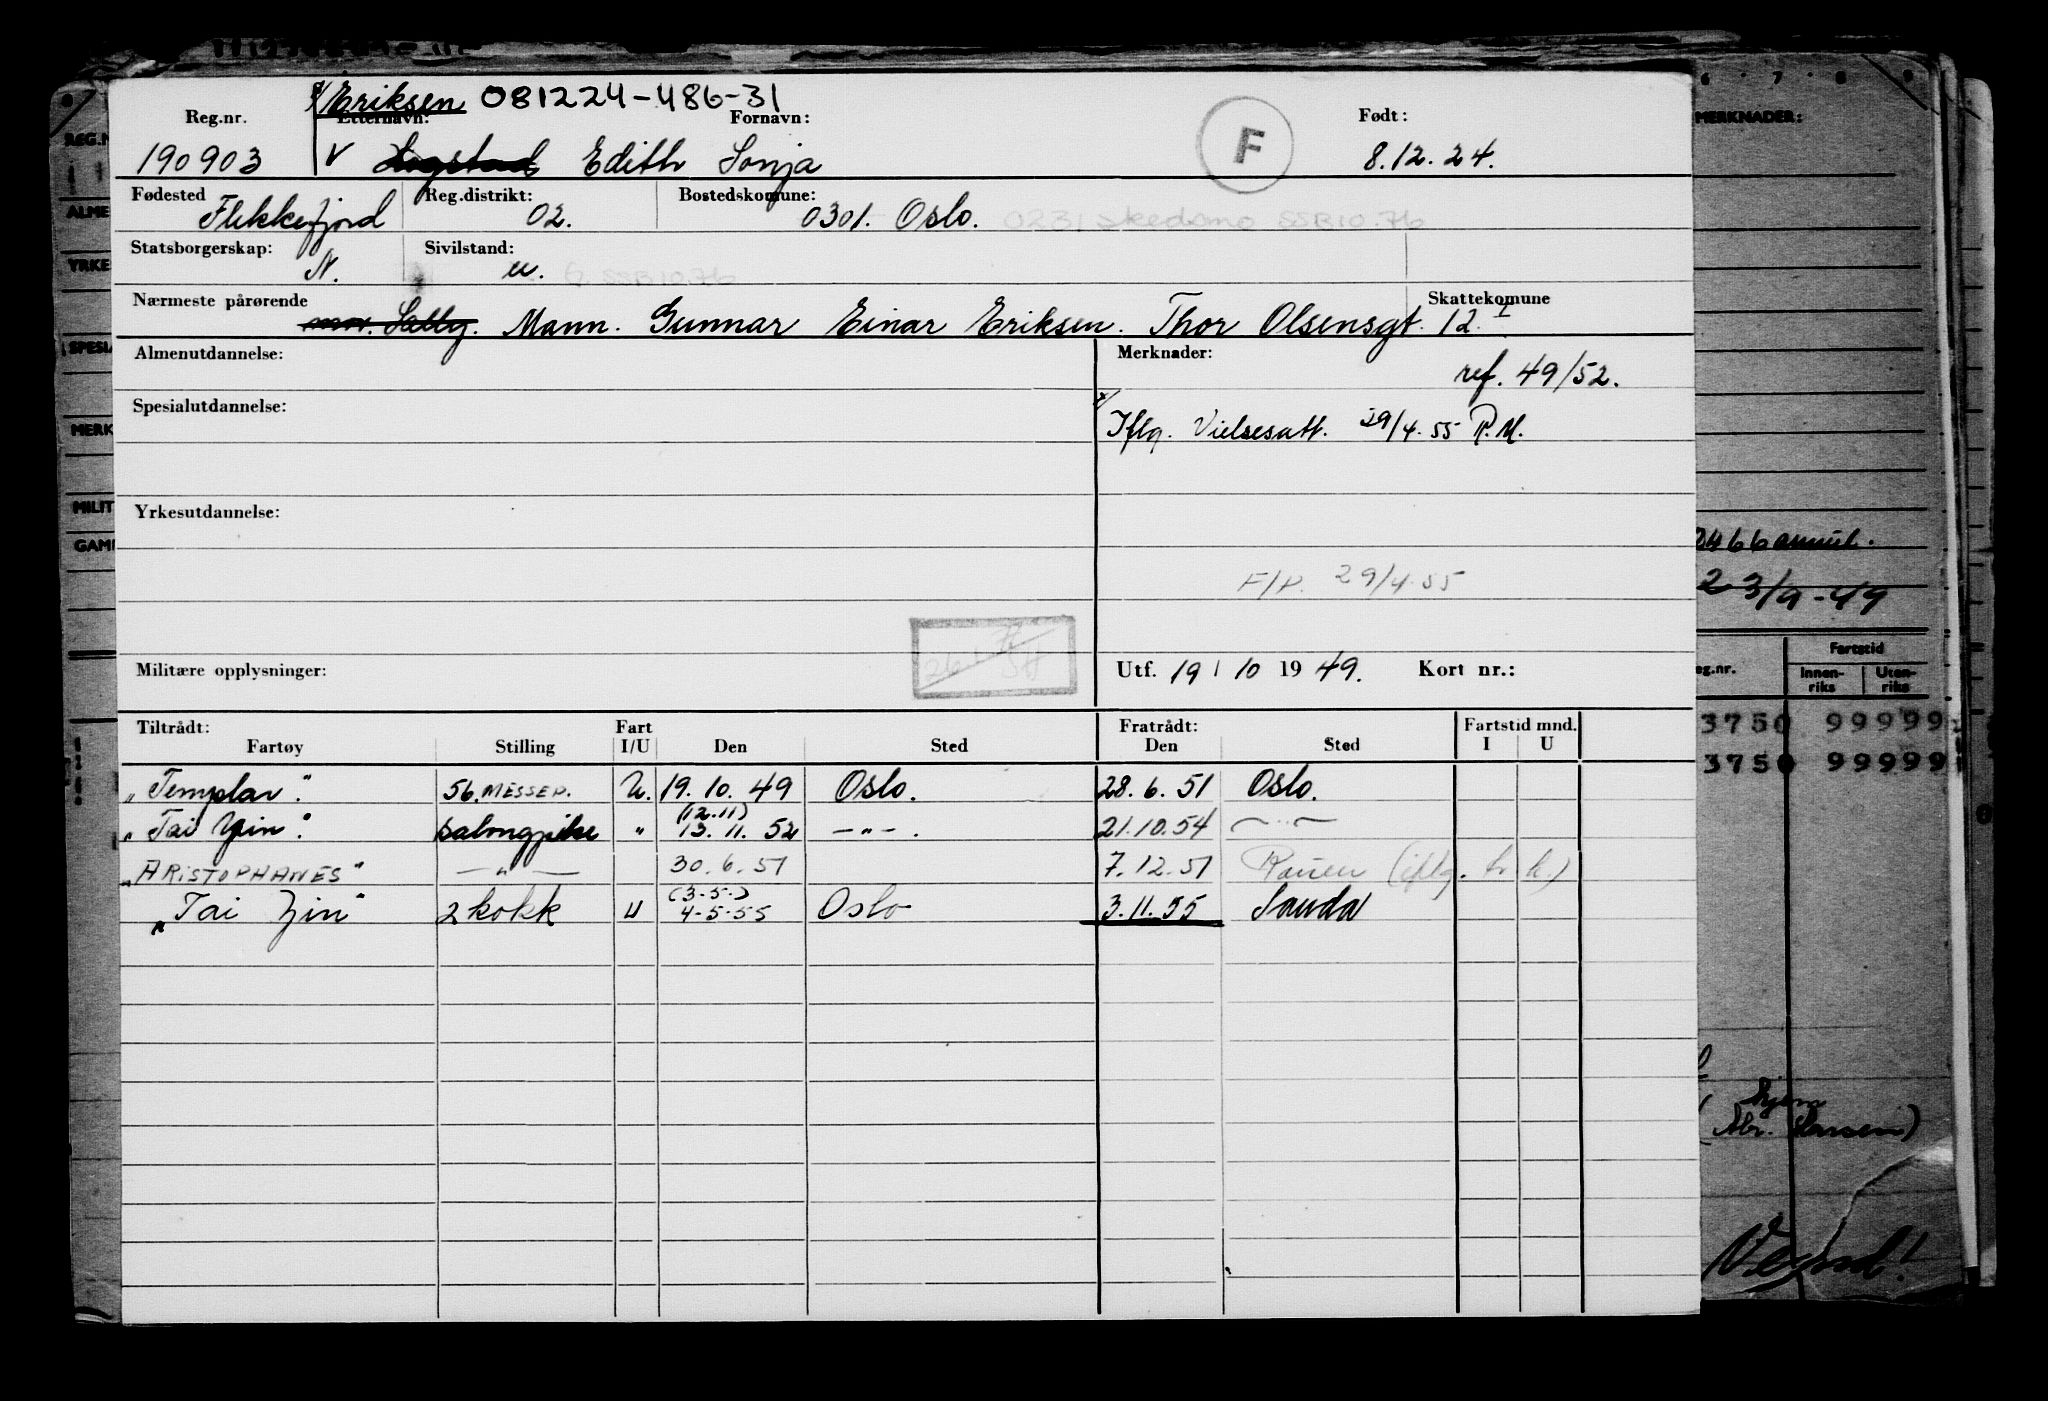 Eriksen 081224-486-31
Reg.nr. Etternavn: Fornavn: Født:
190903 V Edith Sonja F 8.12.24.
Fødested Reg.distrikt: Bostedskomune:
Flekkefjord 02. 0301. Oslo. 0231 Skedsmo SSB10.76
Statsborgerskap: Sivilstand:
N. u. G SSB10.76
Nærmeste pårørende Skattekomune
mor. Sally. Mann. Gunnar Einar Eriksen. Thor Olsensgt. 12. I
Almenutdannelse: Merknader:
ref. 49/52.
Spesialutdannelse:
x/ Iflg. Vielsesatt. 29/4.55 R.M.
Yrkesutdannelse:
F/P. 29/4.55
Militære opplysninger: Utf. 19 / 10 19 49. Kort nr.:
Tiltrådt: Fart Fratrådt: Fartstid mnd.
Fartøy Stilling I/U Den Sted Den Sted I U
"Templar". 56. MESSEP. U. 19.10.49 Oslo. 28.6.51 Oslo.
(12.11)
"Tai Yin". salongpike " 13.11.52 —"—. 21.10.54 —"—
"ARISTOPHANES" —"— 30.6.51 7.12.51 Rouen (iflg. hr. k.)
(3-5-)
"Tai Yin" 2 kokk U 4-5-55 Oslo 3.11.55 Sauda
6 7 8 9
MERKNADER:
2466 annul.
2 3/9-49
Fartstid
eg.nr. Innen-
riks Uten-
riks
3750 99999
3750 99999
hjem
Vend!
REG.N
ALME
YRKE
SPESIA
MERK
MILIT
GAMI